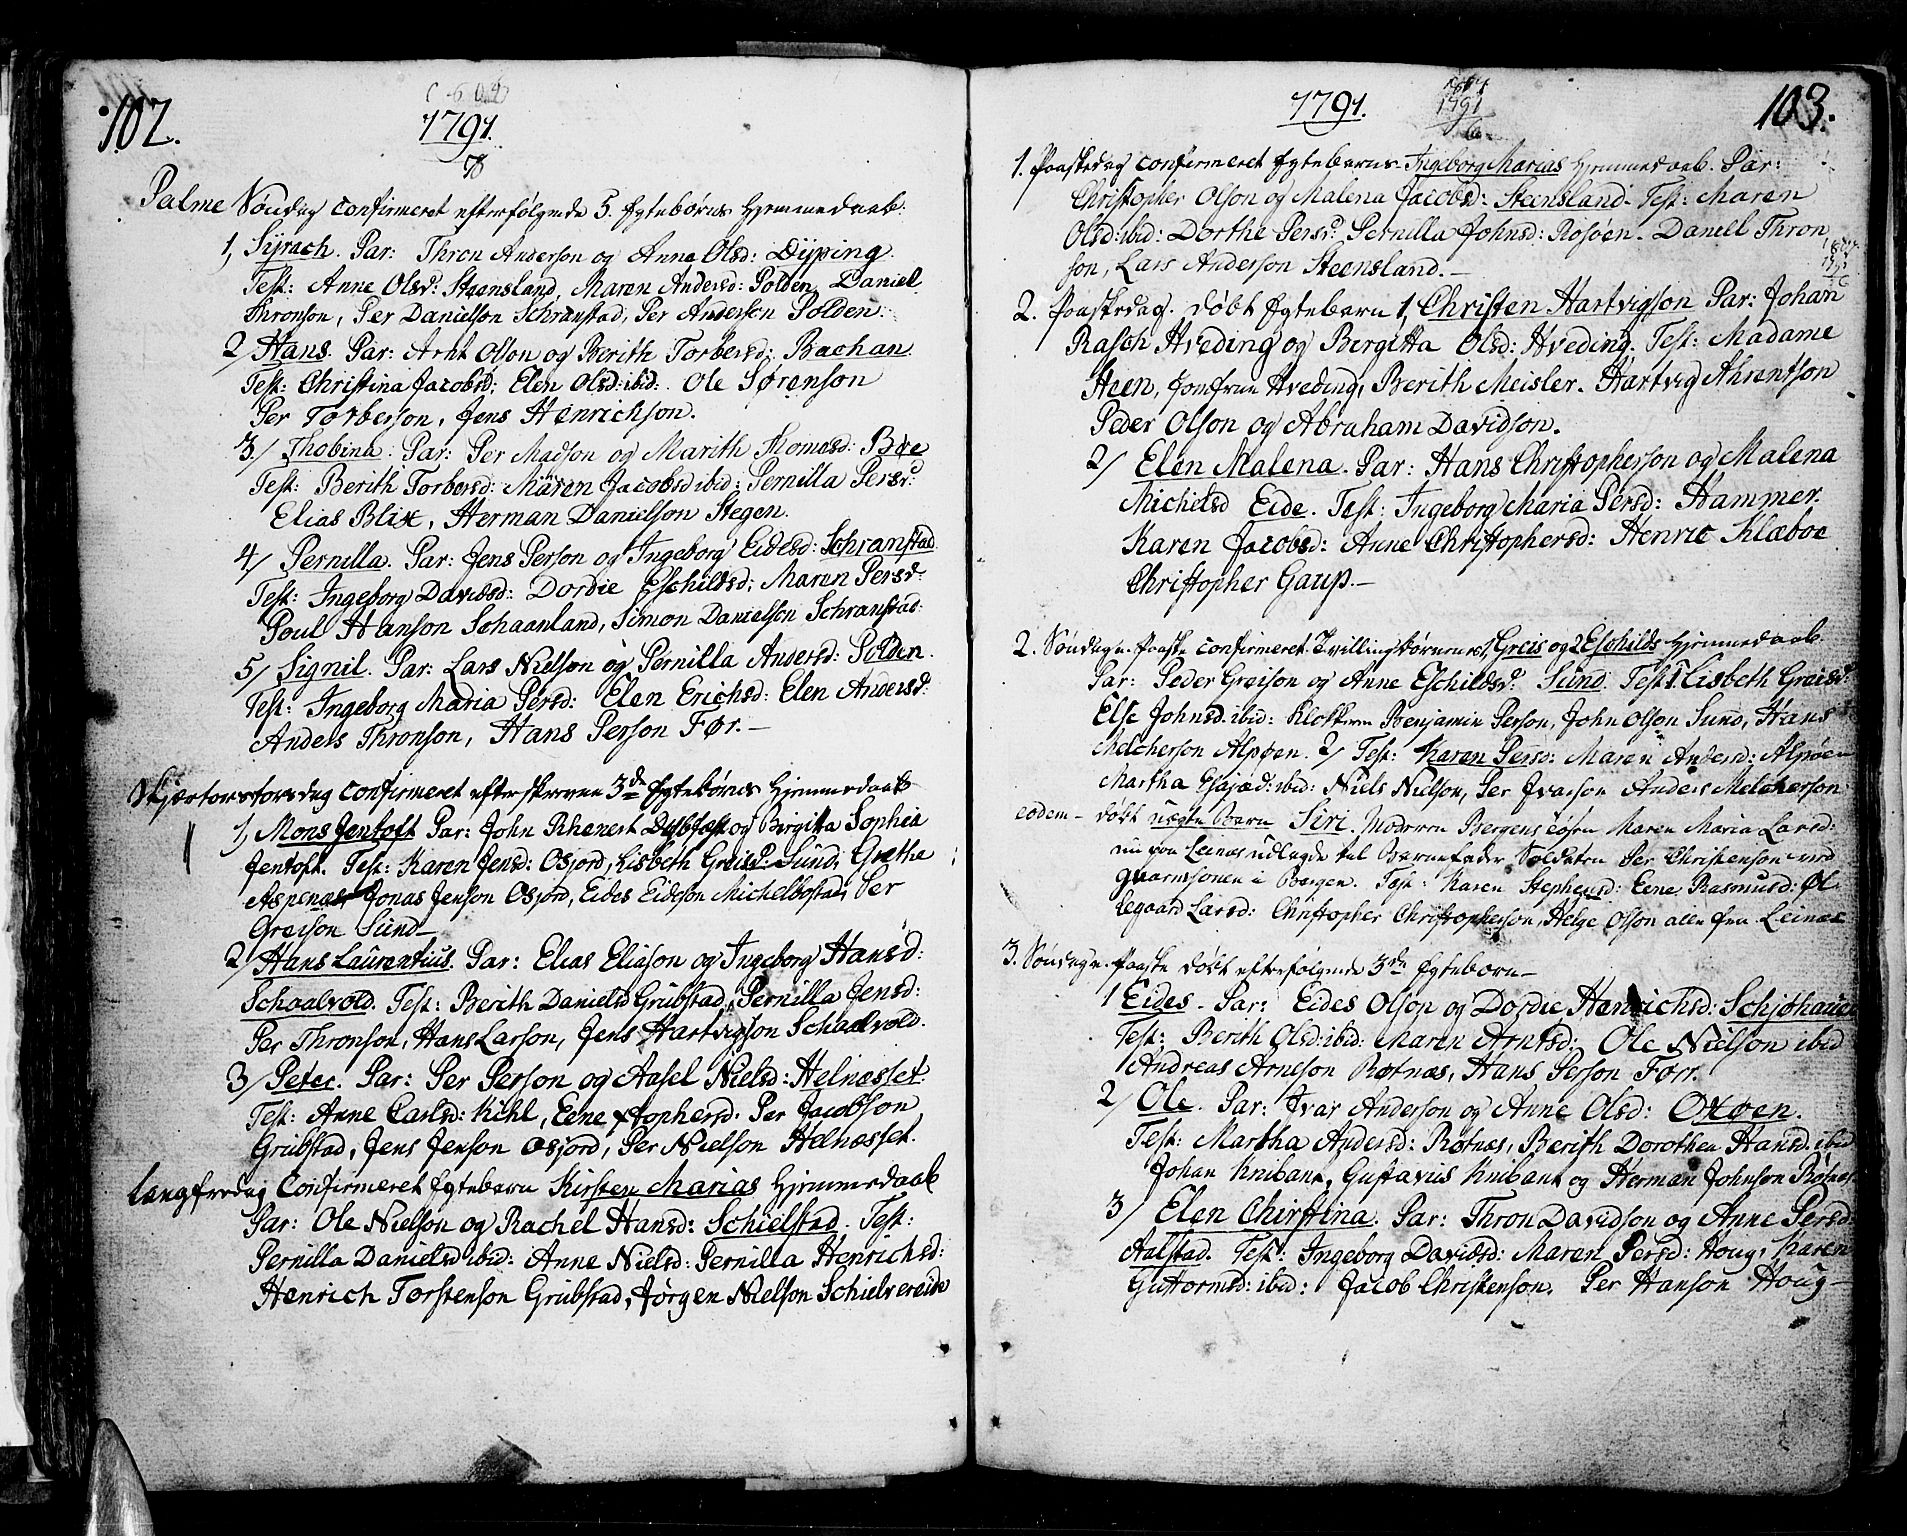 102.
1791.
Palme Søndag confirmeret efterfølgende 5. Ægtebørns Hjemmedaab:
1, Syrach. Par: Thron Anderson og Anne Olsd: Dÿping.
Test: Anne Olsd: Steensland, Maren Andersd: Polden, Daniel
Thronson, Per Danielson Schranstad, Per Anderson Polden.
2/ Hans. Par: Arnt Olson og Berith Torbersd: Bachan.
Test: Christina Jacobsd: Elen Olsd: ibid: Ole Sørenson
Per Torberson, Jens Henrichson.
3/ Thobina. Par: Per Madson og Marith Thomasd: Bøe
Test: Berith Torbersd: Maren Jacobsd ibid: Pernilla Persd:
Elias Blix, Herman Danielson Stegen.
4/ Pernilla. Par: Jens Person og Ingeborg Eidesd: Schranstad
Test: Ingeborg Davidsd: Dordie Eschildsd: Maren Persd:
Poul Hanson Schaanland, Simon Danielson Schranstad:
5/ Signil. Par: Lars Nielson og Pernilla Andersd: Polden.
Test: Ingeborg Maria Persd: Elen Erichsd: Elen Andersd:
Anders Thronson, Hans Person Før.—
Skjærtorstorsdag confirmeret efterskrevne 3de Ægtebørns Hjemmedaab
1, Mons Jentoft Par: John Rhenert Dybfæst og Birgitta Sophia
Jentoft. Test: Karen Jensd: Osjord, Lisbeth Greisd: Sund, Grethe
Aspenæs, Jonas Jenson Osjord, Eides Eideson Michelbostad, Per
Greison Sund—
2/ Hans Laurentius. Par: Elias Eliason og Ingeborg Hansd:
Schaalvold. Test: Berith Danielsd Grübstad, Pernilla Jensd:
Per Thronson, Hans Larson, Jens Hartvigson Schaalvold.
3/ Peter. Par: Per Person og Aasel Nielsd: Helnæsset.
Test: Anne Carlsd: Kihl, Eene Xtophersd: Per Jacobson
Grübstad, Jens Jenson Osjord, Per Nielson Helnæsset.
Langfredag Confirmeret Ægtebarn Kirsten Marias Hjemmedaab
Par: Ole Nielson og Rachel Hansd: Schielstad. Test:
Pernilla Danielsd ibid: Anne Nielsd: Pernilla Henrichsd:
Henrich Torstenson Grübstad, Jørgen Nielson Schielvereide
1791.
1791
6
103.
1. Paaskedag confirmeret Ægtebarns Ingeborg Marias Hjemmedaab. Par:
Christopher Olson og Malena Jacobsd: Steensland. Test: Maren
Olsd: ibid: Dorthe Persd: Pernilla Johnsd: Rosøen. Danell Thron
son, Lars Anderson Steensland.—
2. Paaskedag. døbt Ægtebarn 1, Christen Hartvigson Par: Johan
Rasch Hveding og Bergitta Olsd: Hveding. Test: Madame
Steen, Jomfrue Hveding, Berith Meisler. Hartvig Ahrentson
Peder Olson og Abraham Davidson.
2/ Elen Malena. Par: Hans Christopherson og Malena
Michelsd Eide. Test: Ingeborg Maria Persd: Hammer.
Karen Jacobsd: Anne Christophersd: Henric Klæboe
Christopher Gaup.—
2. Søndag e. Paaske confirmeret Tvillingbørnenes 1, Greis og 2 Eschilds Hjemmedaab.
Par: Peder Greison og Anne Eschildsd: Sund. Test 1. Lisbeth Greisd:
Else Johnsd. ibid: Klokkeren Benjamin Person, John Olson Sund, Hans
Melcherson Alpøen. 2/ Test: Karen Persd: Maren Andersd: Alpøen
Martha Esajæd: ibid: Niels Nielson, Per Ivarson Anders Melcherson.
eodem— døbt uægte Barn Siri. Moderen Maren Maria Larsd:
nu paa Leinæs udlagde til Barnefader Soldaten Per Christenson ved
gvarnisonen i Bergen. Test: Karen Stephensd: Eene Rasmusd: Øl:
legaard Larsd: Christopher Christopherson, Helge Olson alle fra Leinæs
3. Søndag e. Paaske døbt efterfølgende 3de Ægtebørn—
1 Eides. Par: Eides Olson og Dordie Henrichsd: Schjøhauen
Test: Berith Olsd: ibid: Maren Arntsd: Ole Nielson ibid
Andreas Arneson Røtnæs, Hans Person Forr.
2/ Ole. Par: Ivar Anderson og Anne Olsd: Oxøen.
Test: Martha Andersd: Røtnæs, Berith Dorothea Hansd: ibid
Johan Knibant, Gustavus Knibant og Herman Johnson Røtnæs.
3/ Elen Chirstina. Par: Thron Davidson og Anne Persd:
Aalstad. Test: Ingeborg Davidsd: Maren Persd: Houg, Karen
Guttormsd: ibid: Jacob Christenson. Per Hanson Houg—